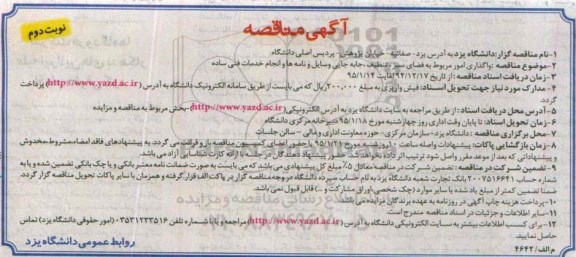 آگهی مناقصه
نوبت دوم
۱- نام مناقصه گزار: دانشگاه یزد به آدرس یزد- صفائیه- خیابان پژوهش- پردیس اصلی دانشگاه
۲- موضوع مناقصه: واگذاری امور مربوط به فضای سبز، تنظیف، جابه جایی وسایل و نامه ها و انجام خدمات فنی ساده
۳- زمان دریافت اسناد مناقصه: از تاریخ ۹۴/۱۲/۱۷ لغایت ۹۵/۱/۱۴
۴- مدارک مورد نیاز جهت تحویل اسناد: فیش واریزی به مبلغ ۲۰۰,۰۰۰ ریال که می بایست از طریق سامانه الکترونیک دانشگاه به آدرس (http://www.yazd.ac.ir) پرداخت
گردد.
۵- آدرس محل دریافت اسناد: از طریق مراجعه به سایت دانشگاه یزد به آدرس الکترونیکی (http://www.yazd.ac.ir)- بخش مربوط به مناقصه و مزایده
۶- زمان تحویل اسناد: تا پایان وقت اداری روز چهارشنبه مورخ ۹۵/۱/۱۸ دبیرخانه مرکزی دانشگاه
۷- محل برگزاری مناقصه: دانشگاه یزد- سازمان مرکزی- حوزه معاونت اداری و مالی- سالن جلسات
۸- زمان بازگشایی پاکات: پیشنهادات واصله ساعت روز شنبه مورخ ۹۵/۱/۲۱ با حضور اعضای کمیسیون مناقصه باز و قرائت می گردد. به پیشنهادهای فاقد امضا، مشروط، مخدوش
و پیشنهاداتی که بعد از موعد مقرر واصل شود ترتیب اثر داده نخواهد شد. حضور پیشنهاد دهندگان در جلسه با ارائه کارت شناسایی آزاد می باشد.
۹- تضمین شرکت در مناقصه: تضمین شرکت در مناقصه معادل ۵٪ مبلغ کل پیشنهادی می باشد که می بایست به صورت ضمانت نامه معتبر بانکی و یا چک بانکی تضمین شده و یا به
شماره حساب ۲۰۰۷۵۱۶۶۴۱ بانک تجارت شعبه دانشگاه یزد به نام حساب سپرده دانشگاه مربوطه مناقصه گزار در پاکت الف قرار گرفته و همزمان با سایر پاکات تحویل مناقصه گزار گردد.
ضمنا تضمین کمتر از مبلغ یاد شده یا سایر موارد (چک شخصی، اوراق مشارکت و ...) قابل قبول نمی باشد.
۱۰- پرداخت هزینه چاپ آگهی در روزنامه به عهده برندگان مزایده می باشد.
۱۱- سایر اطلاعات و جزئیات در اسناد مناقصه مندرج است.
۱۲- برای کسب اطلاعات بیشتر به سایت الکترونیکی دانشگاه به آدرس (http://www.yazd.ac.ir) مراجعه و یا با شماره تلفن ۰۳۵۳۱۲۳۳۵۱۶ (امور حقوقی دانشگاه یزد) تماس
حاصل نمایید.
م الف/ ۴۶۴۲
روابط عمومی دانشگاه یزد